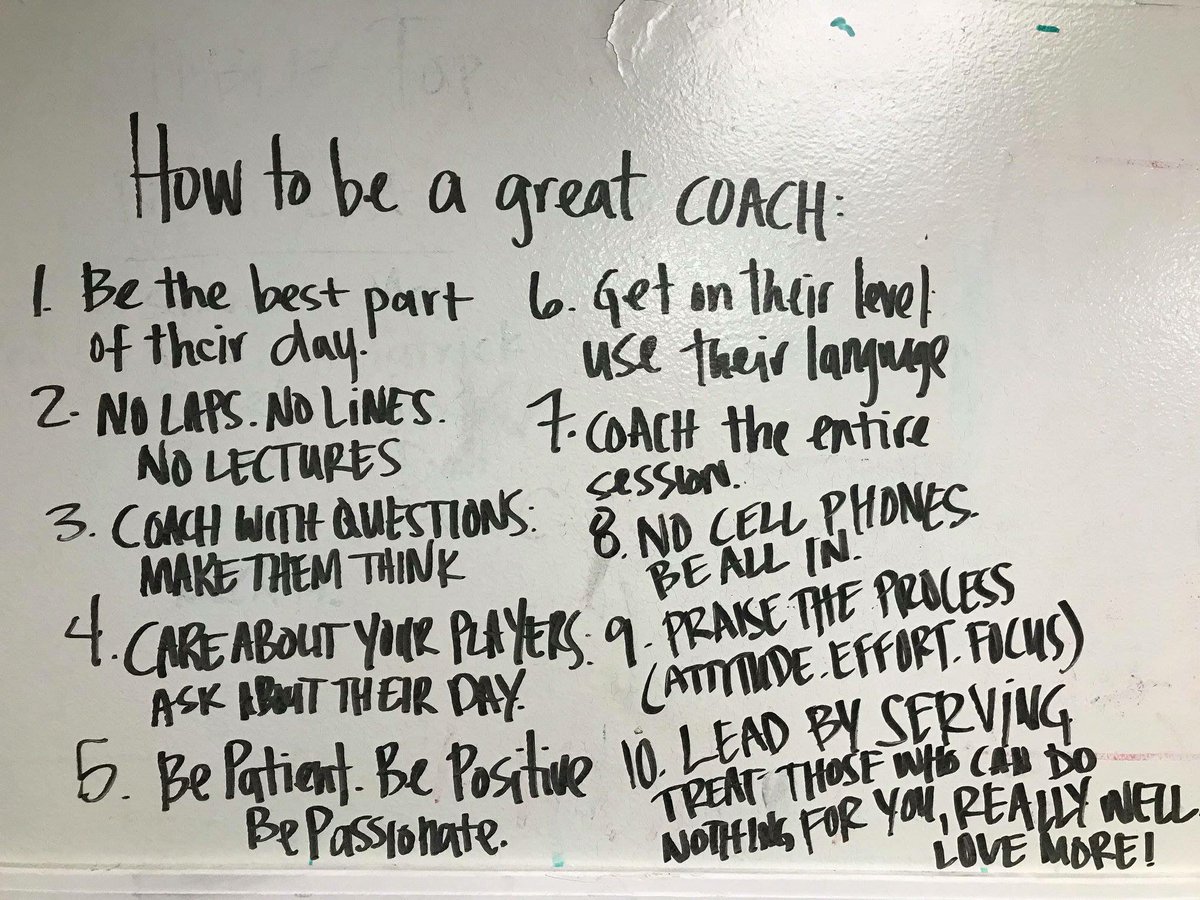 How to be a great COACH:
1. Be the best part
of their day.
2. NO LAPS. NO LINES.
NO LECTURES
3. COACH WITH QUESTIONS:
MAKE THEM THINK
4. CARE ABOUT YOUR PLAYERS:
ASK ABOUT THEIR DAY.
5. Be Patient. Be Positive
Be Passionate.
6. Get on their level:
use their language
7. COACH the entire
session.
8. NO CELL PHONES.
BE ALL IN.
9. PRAISE THE PROCESS
(ATTITUDE. EFFORT. FOCUS)
10. LEAD BY SERVING
TREAT THOSE WHO CAN DO
NOTHING FOR YOU, REALLY WELL.
LOVE MORE!